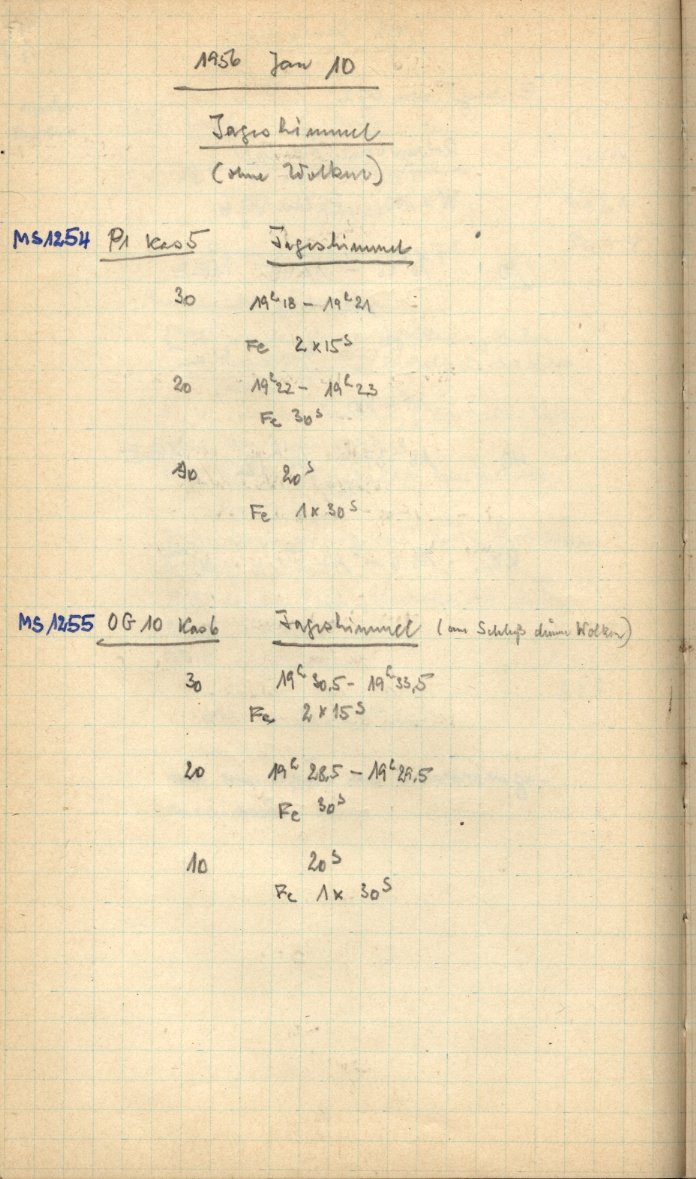 1956 Jan 10
Tageshimmel
(ohne Wolken)
MS1254 P1 Kas 5 Tageshimmel
30 19h18 – 19h21
Fe 2 x 15s
20 19h22 – 19h23
Fe 30s
10 20s
Fe 1 x 30s
MS1255 OG 10 Kas 6 Tageshimmel (am Schluß dünne Wolken)
30 19h 30,5 – 19h 33,5
Fe 2 x 15s
20 19h 28,5 – 19h 29,5
Fe 30s
10 20s
Fe 1 x 30s